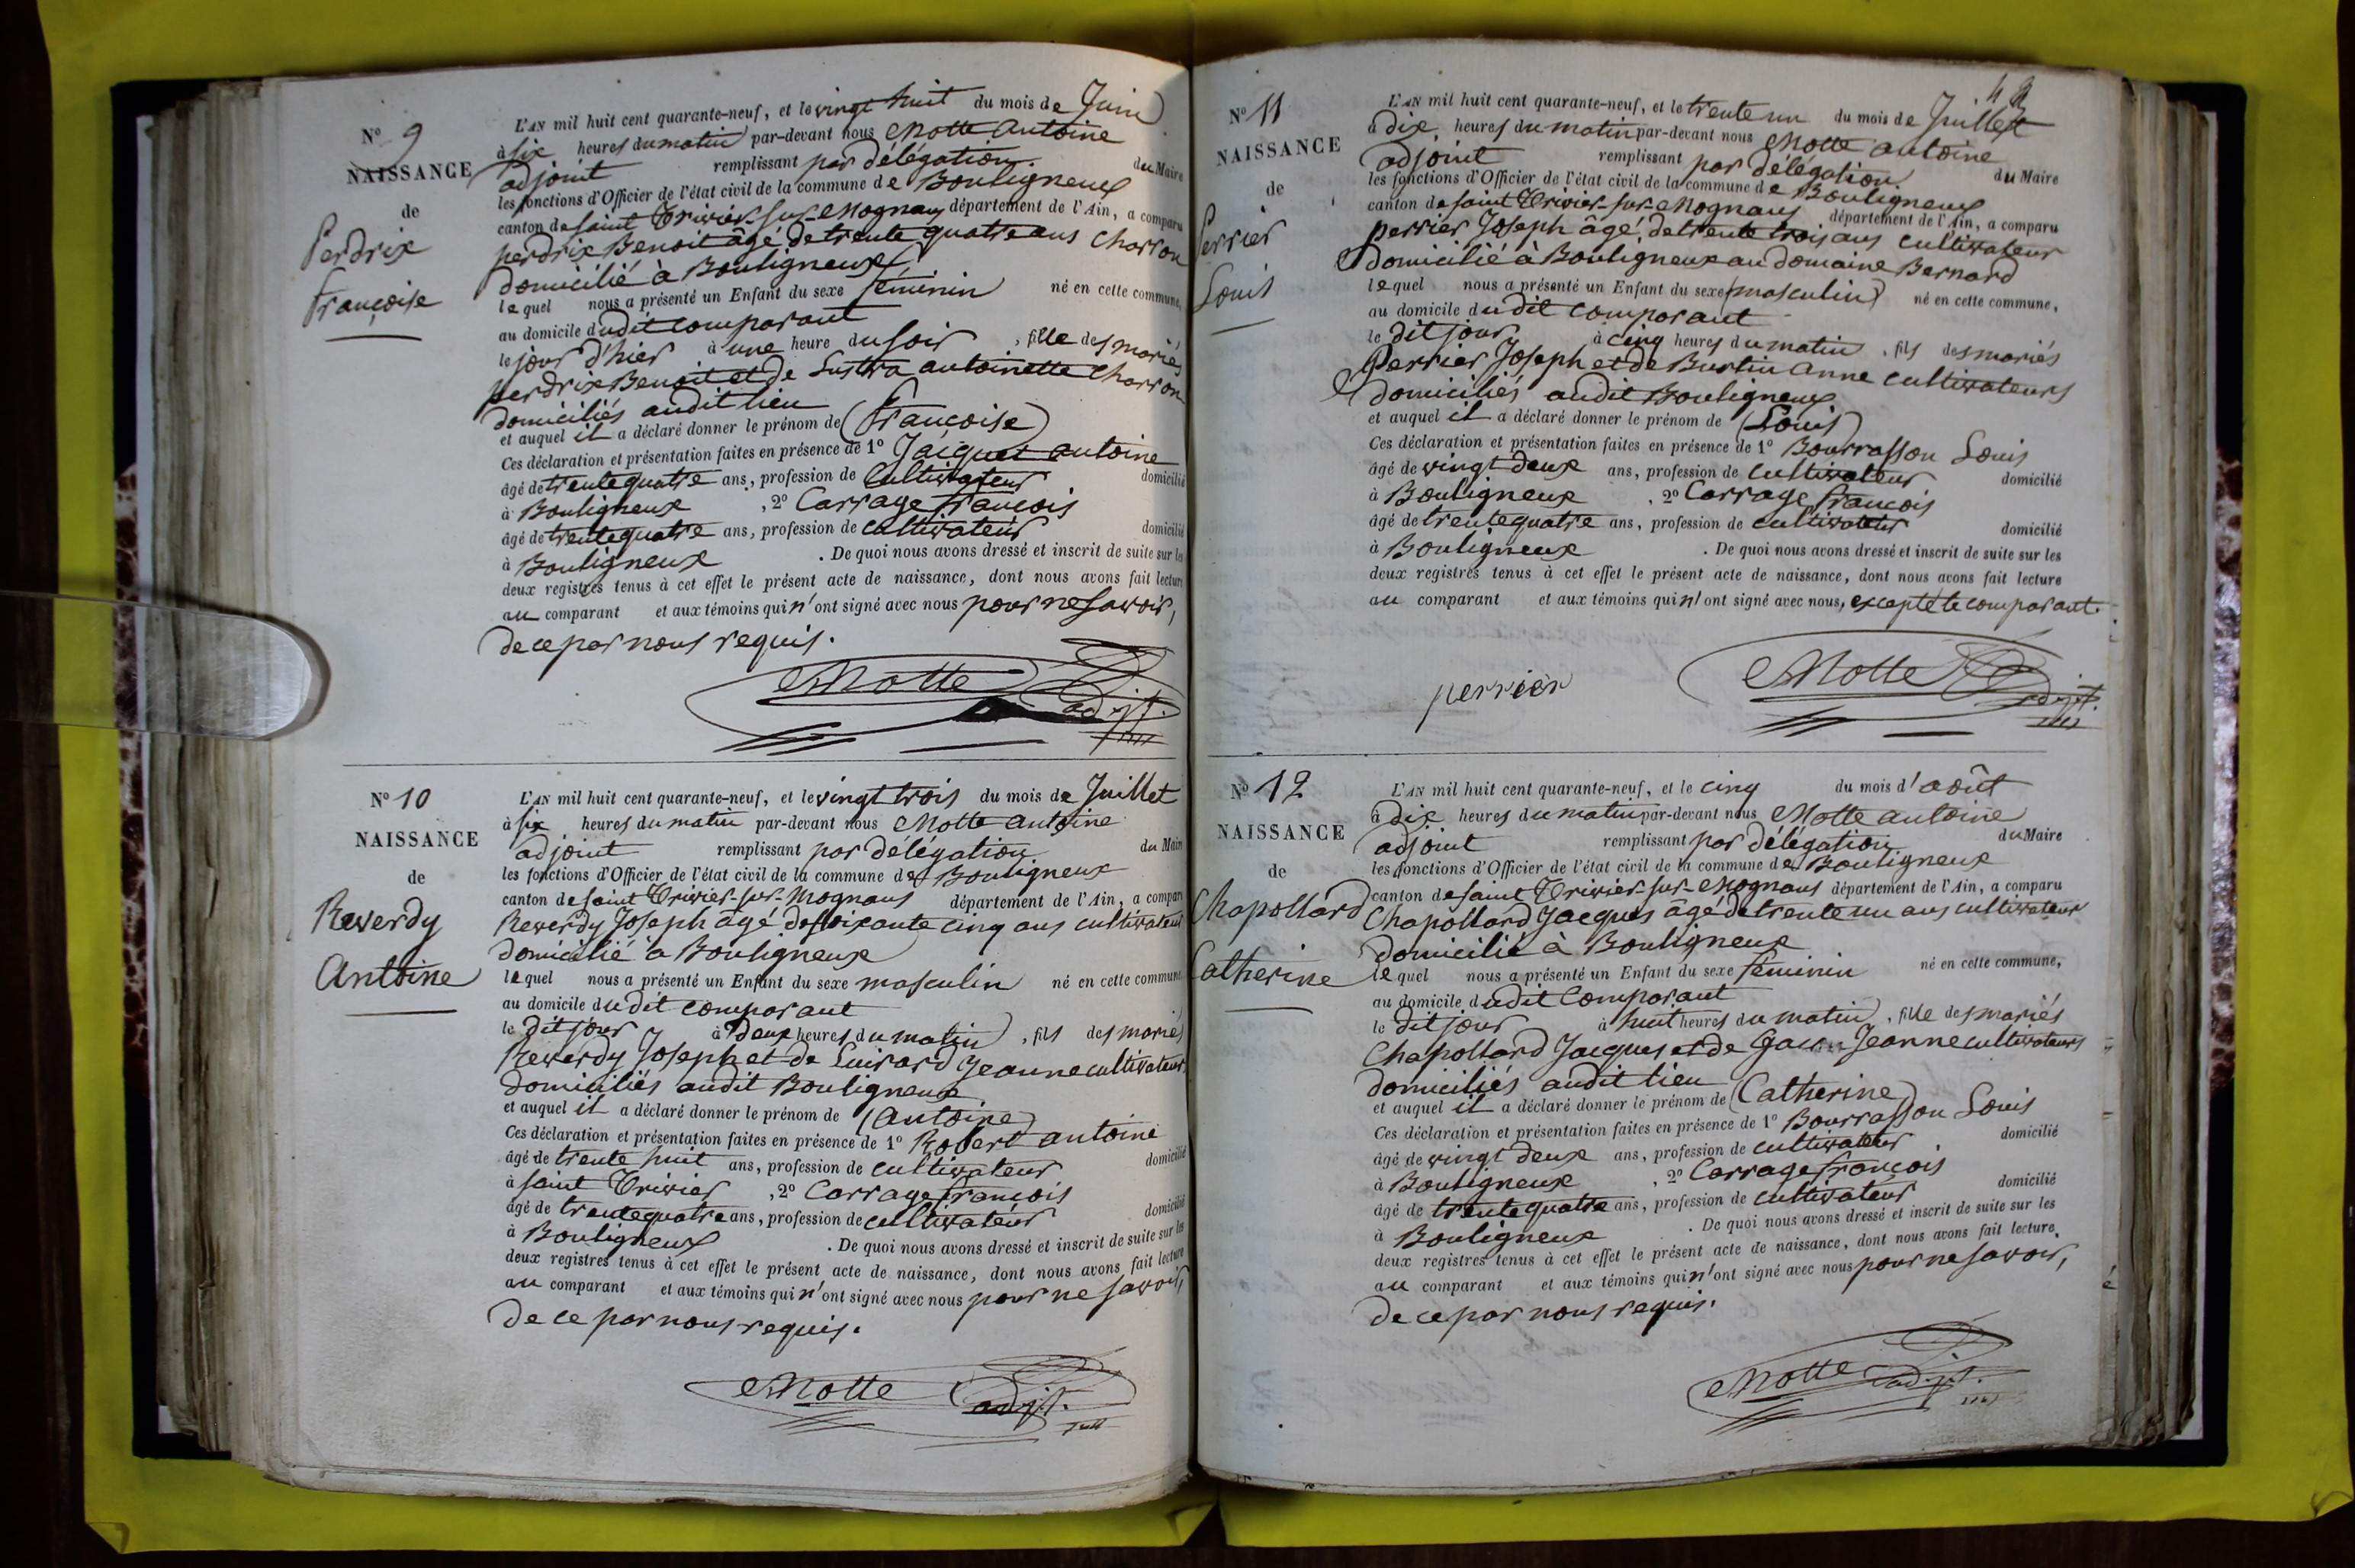 N° 9
NAISSANCE
de
Perdrix
Françoise
L'AN mil huit cent quarante-neuf, et le vingt huit du mois de Juin
à six heures du matin par-devant nous Motte antoine
adjoint remplissant par délégation du Maire
les fonctions d'Officier de l'état civil de la commune de Bouligneux
canton de saint Trivier-sur-Mognans département de l'Ain, a comparu
perdrix Benoit âgé de trente quatre ans charron
domicilié à Bouligneux
lequel nous a présenté un Enfant du sexe féminin né en cette commune,
au domicile dudit comparant
le jour d'hier à une heure du soir, fille des mariés
perdrix Benoit et de Sustra antoinette charron
domiciliés audit lieu
et auquel il a déclaré donner le prénom de (françoise)
Ces déclaration et présentation faites en présence de 1° Jacquet antoine
âgé de trente quatre ans, profession de cultivateur domicilié
à Bouligneux, 2° Carrage françois
âgé de trente quatre ans, profession de cultivateur domicilié
à Bouligneux. De quoi nous avons dressé et inscrit de suite sur les
deux registres tenus à cet effet le présent acte de naissance, dont nous avons fait lecture
au comparant et aux témoins qui n'ont signé avec nous pour ne savoir,
de ce par nous requis.
Motte adjt.
N° 10
NAISSANCE
de
Reverdy
Antoine
L'AN mil huit cent quarante-neuf, et le vingt trois du mois de Juillet
à six heures du matin par-devant nous Motte antoine
adjoint remplissant par délégation du Maire
les fonctions d'Officier de l'état civil de la commune de Bouligneux
canton de saint Trivier-sur-Mognans département de l'Ain, a comparu
Reverdy Joseph âgé de soixante cinq ans cultivateur
domicilié à Bouligneux
lequel nous a présenté un Enfant du sexe masculin né en cette commune
au domicile dudit comparant
le dit jour à deux heures du matin, fils des mariés
Reverdy Joseph et de Luirard Jeanne cultivateurs
domiciliés audit Bouligneux
et auquel il a déclaré donner le prénom de (Antoine)
Ces déclaration et présentation faites en présence de 1° Robert antoine
âgé de trente huit ans, profession de cultivateur domicilié
à saint Trivier, 2° Carrage françois
âgé de trente quatre ans, profession de cultivateur domicilié
à Bouligneux. De quoi nous avons dressé et inscrit de suite sur les
deux registres tenus à cet effet le présent acte de naissance, dont nous avons fait lecture
au comparant et aux témoins qui n'ont signé avec nous pour ne savoir,
de ce par nous requis.
Motte adjt.
N° 11
NAISSANCE
de
Perrier
Louis
L'AN mil huit cent quarante-neuf, et le trente un du mois de Juillet
à dix heures du matin par-devant nous Motte antoine
adjoint remplissant par délégation du Maire
les fonctions d'Officier de l'état civil de la commune de Bouligneux
canton de saint Trivier-sur-Mognans département de l'Ain, a comparu
perrier Joseph âgé de trente trois ans cultivateur
domicilié à Bouligneux au domaine Bernard
lequel nous a présenté un Enfant du sexe (masculin) né en cette commune,
au domicile dudit comparant
le dit jour à cinq heures du matin, fils des mariés
Perrier Joseph et de Burtin anne cultivateurs
domiciliés audit Bouligneux
et auquel il a déclaré donner le prénom de (Louis)
Ces déclaration et présentation faites en présence de 1° Bourrasson Louis
âgé de vingt deux ans, profession de cultivateur domicilié
à Bouligneux, 2° Carrage françois
âgé de trente quatre ans, profession de cultivateur domicilié
à Bouligneux. De quoi nous avons dressé et inscrit de suite sur les
deux registres tenus à cet effet le présent acte de naissance, dont nous avons fait lecture
au comparant et aux témoins qui n'ont signé avec nous, excepté le comparant.
perrier Motte adjt.
N° 12
NAISSANCE
de
Chapolard
Catherine
L'AN mil huit cent quarante-neuf, et le cinq du mois d'août
à dix heures du matin par-devant nous Motte antoine
adjoint remplissant par délégation du Maire
les fonctions d'Officier de l'état civil de la commune de Bouligneux
canton de saint Trivier-sur-Mognans département de l'Ain, a comparu
Chapollard Jacques âgé de trente un ans cultivateur
domicilié à Bouligneux
lequel nous a présenté un Enfant du sexe féminin né en cette commune,
au domicile dudit Comparant
le dit jour à huit heures du matin, fille des mariés
Chapollard Jacques et de Jeanne cultivateurs
domiciliés audit lieu
et auquel il a déclaré donner le prénom de (Catherine)
Ces déclaration et présentation faites en présence de 1° Bourrasson Louis
âgé de vingt deux ans, profession de cultivateur domicilié
à Bouligneux, 2° Carrage françois
âgé de trente quatre ans, profession de cultivateur domicilié
à Bouligneux. De quoi nous avons dressé et inscrit de suite sur les
deux registres tenus à cet effet le présent acte de naissance, dont nous avons fait lecture
au comparant et aux témoins qui n'ont signé avec nous pour ne savoir,
de ce par nous requis.
Motte adjt.